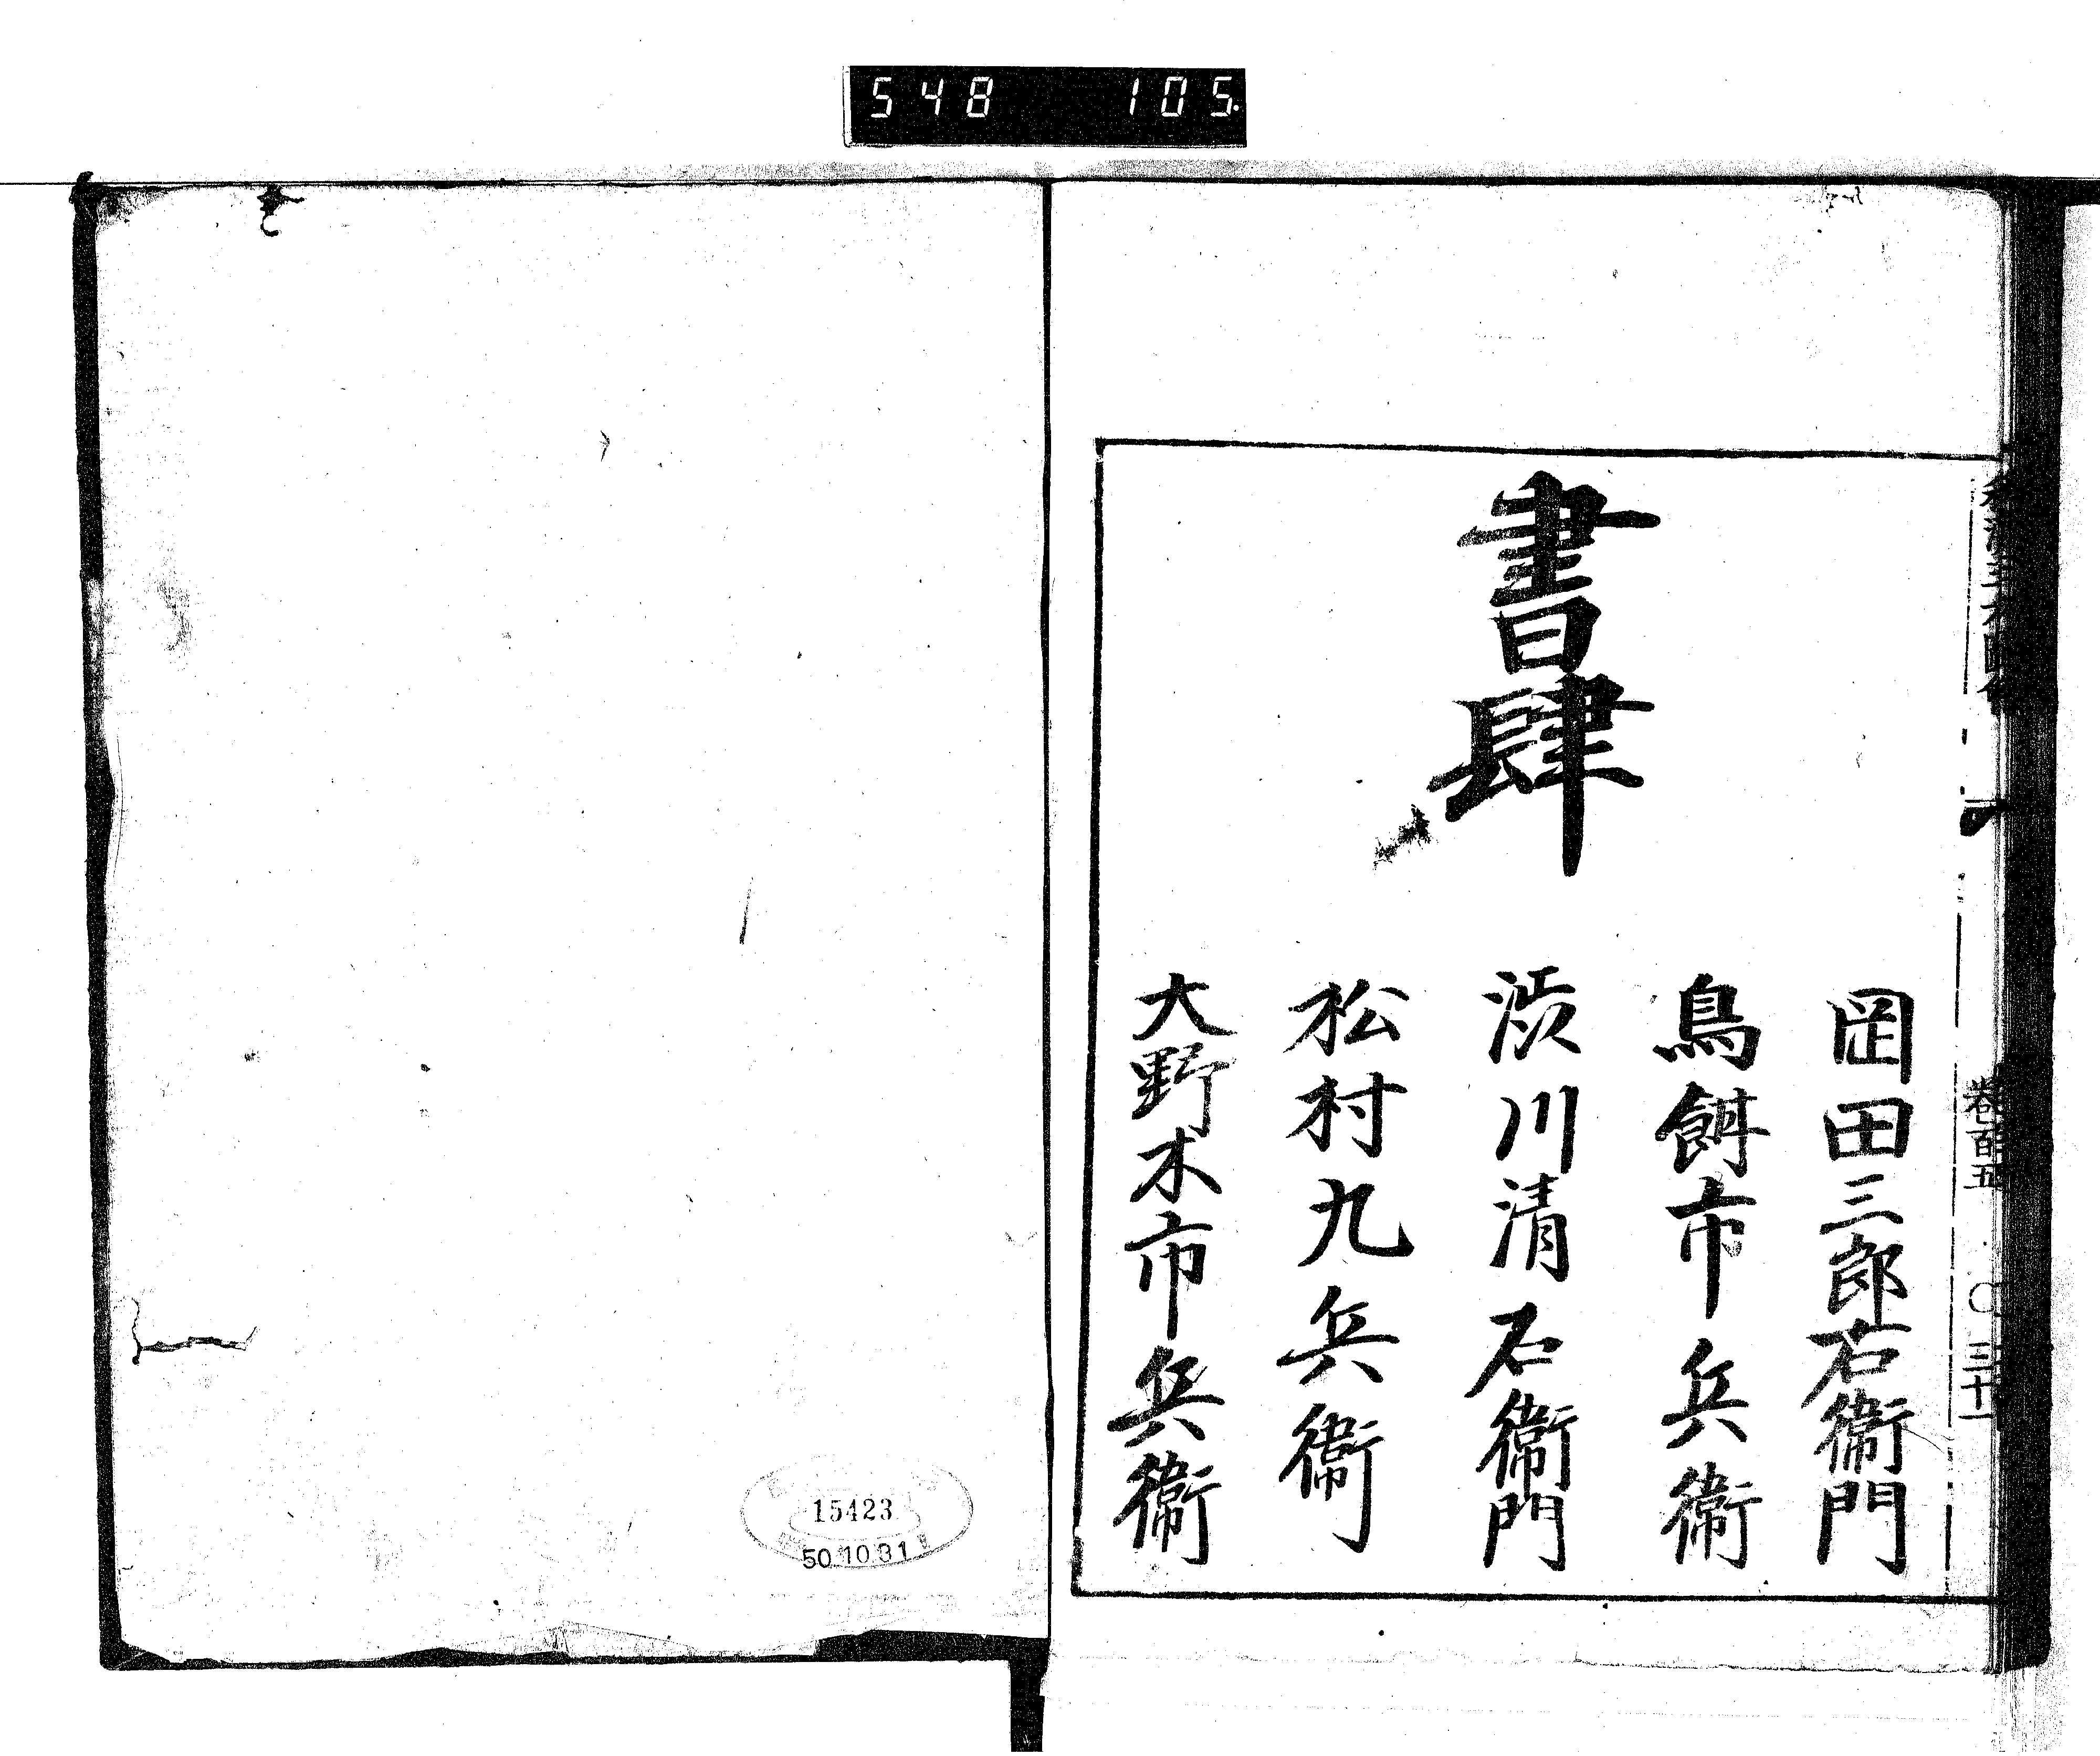 548 105.
和漢三才圖會
卷百五 ○ 三十一
書肆
岡田三郎右衛門
鳥飼市兵衛
渋川清右衛門
松村九兵衛
大野木市兵衛
15423
50.10.31